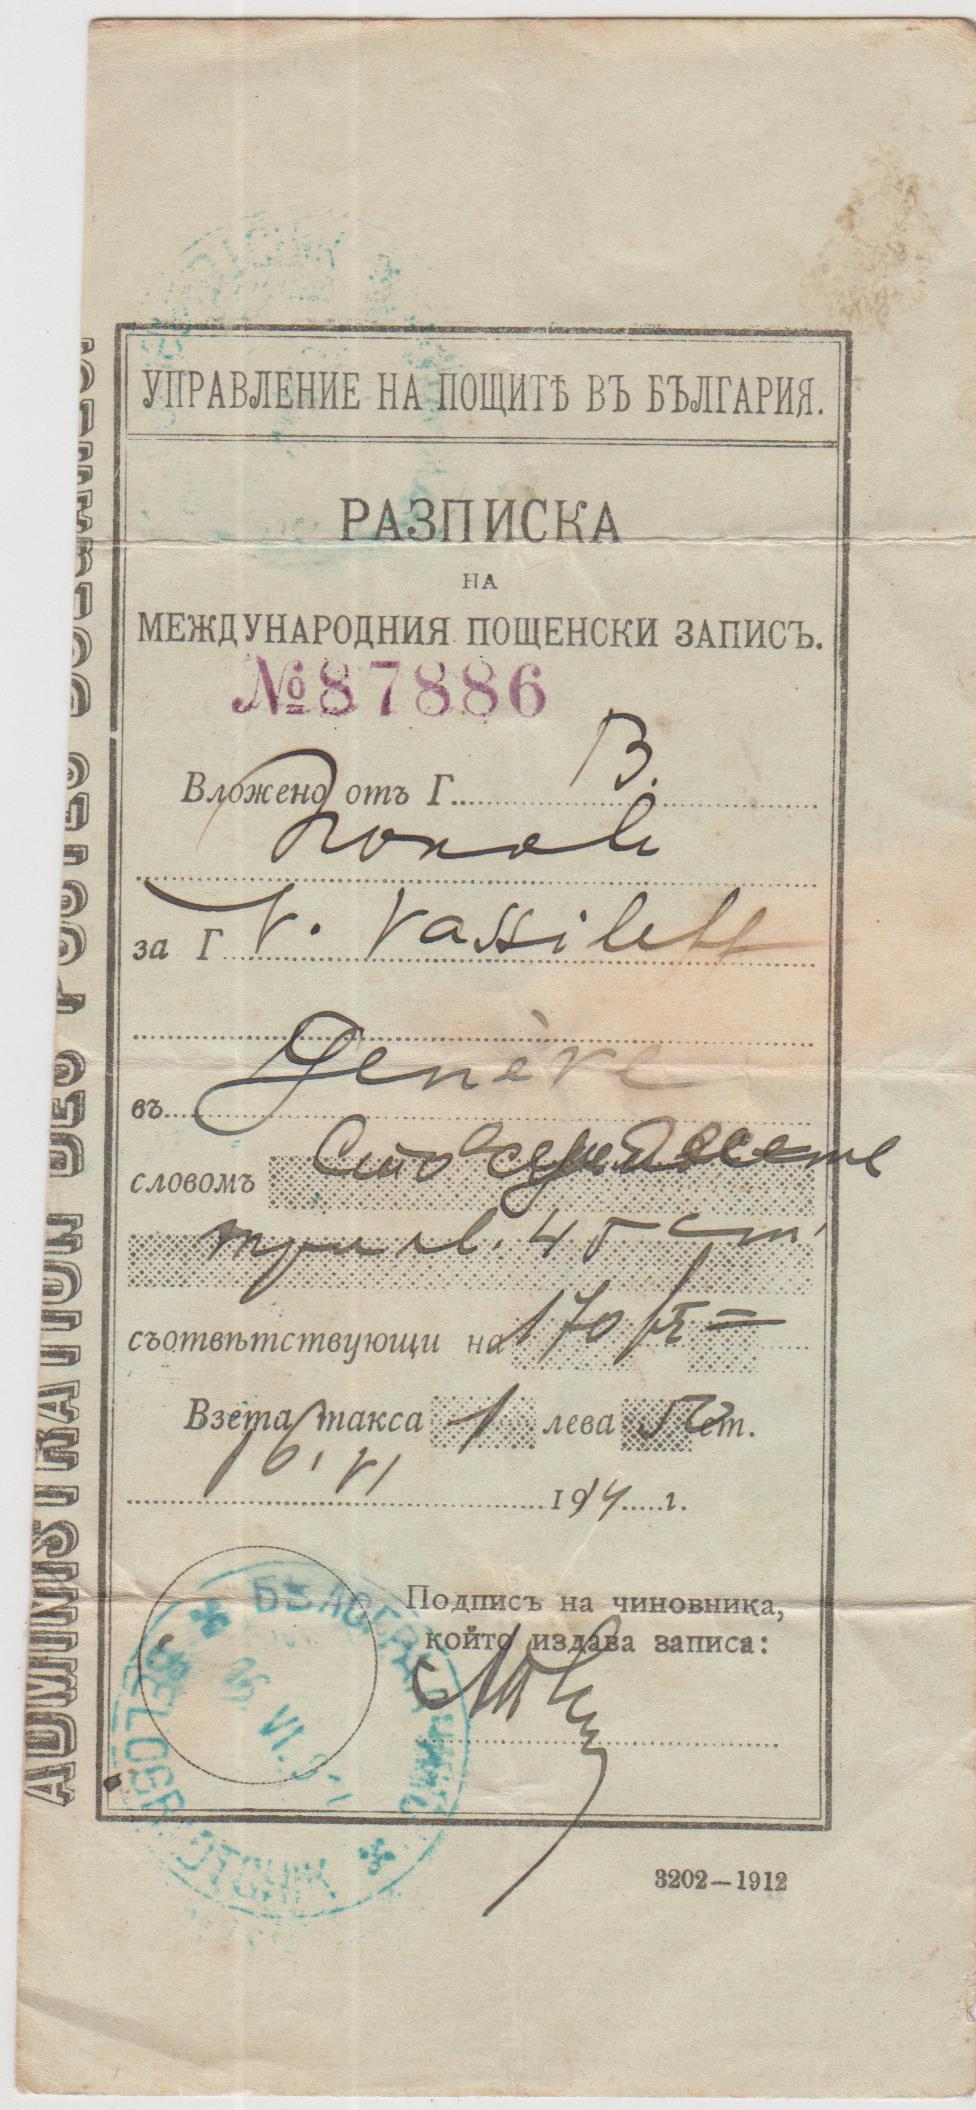 УПРАВЛЕНИЕ НА ПОЩИТѢ ВЪ БЪЛГАРИЯ.
РАЗПИСКА
НА
МЕЖДУНАРОДНИЯ ПОЩЕНСКИ ЗАПИСЪ.
№ 87886
Вложено отъ Г. В.
за Г V. Vassileff
въ Genève
словомъ Сто седемдесеть
три лв. 45 ст.
съответствующи на 170 fr =
Взета такса 1 лева 50 ст.
16. VI 1914 г.
Подписъ на чиновника,
който издава записа:
3202—1912
ADMINISTRATION DES POSTES
16 VI